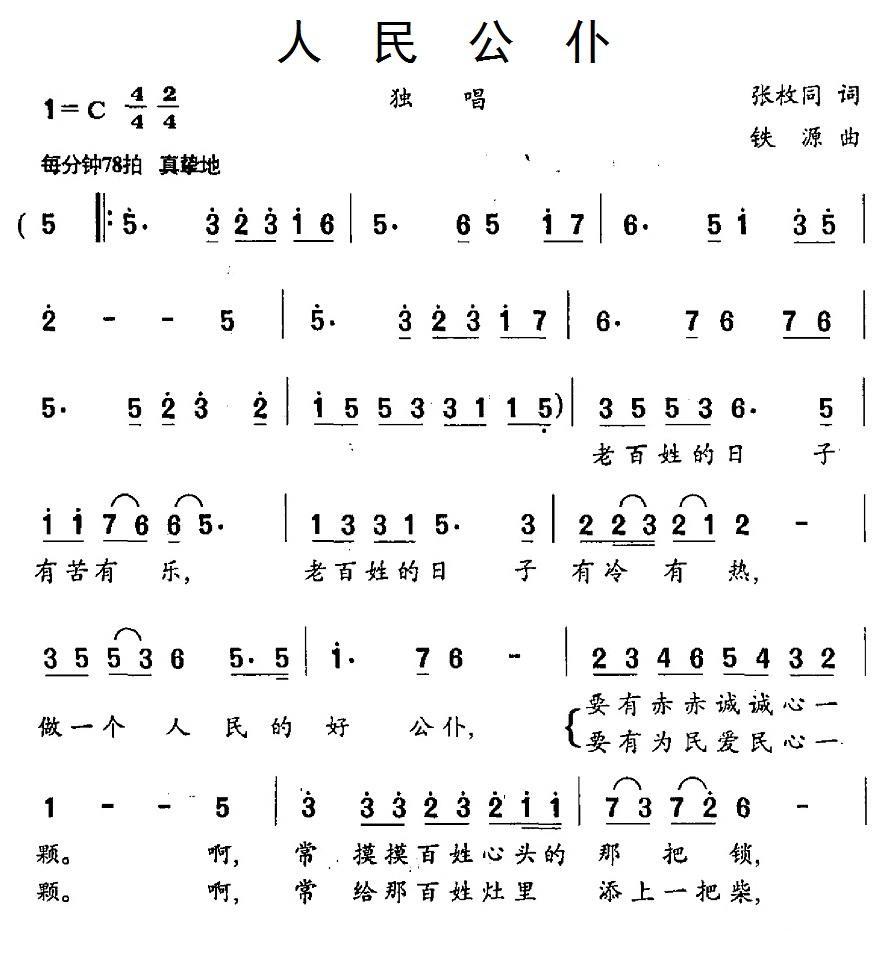 人民公仆
1=C 4/4 2/4 独唱 张枚同 词
铁源 曲
每分钟78拍 真挚地
( 5 ‖: 5̇. 3̇ 2̇ 3̇ 1̇ 6 | 5. 6 5 1̇ 7 | 6. 5 1̇ 3̇ 5̇ |
2̇ - - 5 | 5̇. 3̇ 2̇ 3̇ 1̇ 7 | 6. 7 6 7 6 |
5. 5 2̇ 3̇ 2̇ | 1̇ 5 5 3 3 1 1 5̣ ) | 3 5 5 3 6. 5
老百姓的日 子
1̇ 1̇ 7 6 6 5. | 1 3 3 1 5. 3 | 2 2 3 2 1 2 - |
有苦有 乐, 老百姓的日 子 有冷 有 热,
3 5 5 3 6 5. 5 | 1̇. 7 6 - | 2 3 4 6 5 4 3 2 |
做一个 人 民 的 好 公仆, 要有赤赤诚诚心一
要有为民爱民心一
1 - - 5 | 3̇ 3̇ 3̇ 2̇ 3̇ 2̇ 1̇ 1̇ | 7 3 7 2̇ 6 - |
颗。 啊, 常 摸摸百姓心头的 那 把 锁,
颗。 啊, 常 给那百姓灶里 添上一把柴,